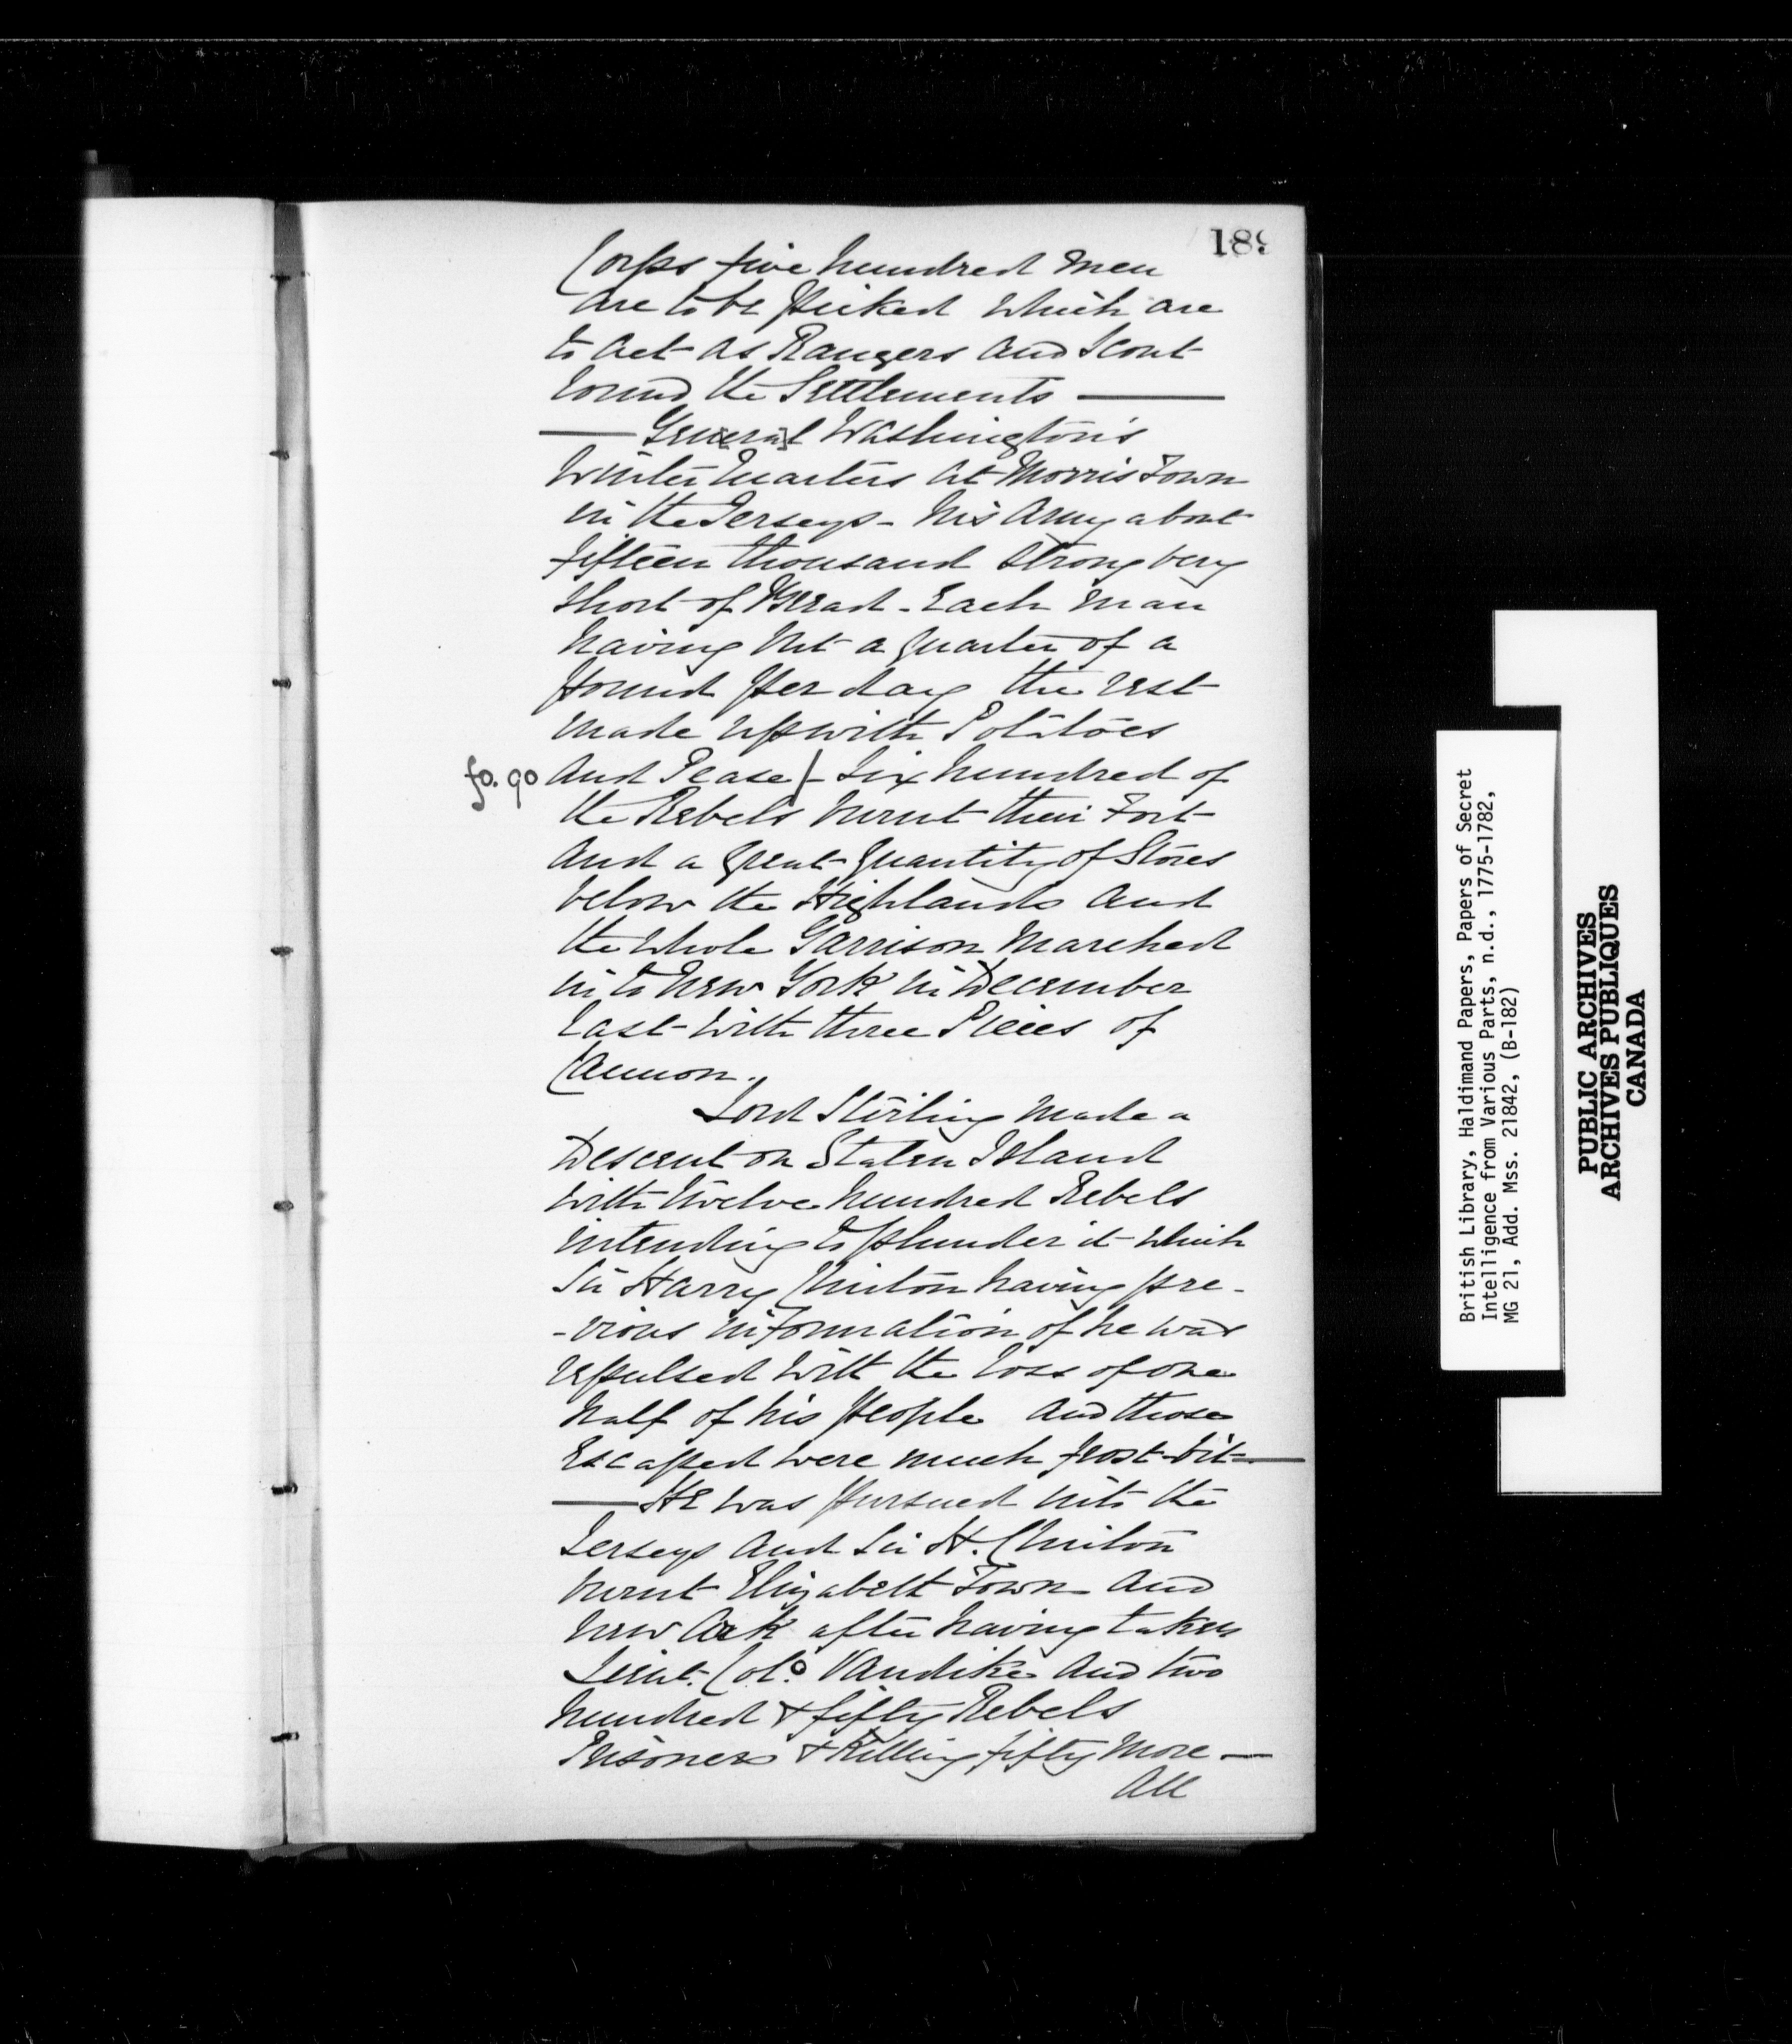 189
Corps five hundred men
are to be picked which are
to act as Rangers and Scout
round the Settlements —
— General Washington's
Winter Quarters at Morris Town
in the Jerseys - his Army about
fifteen thousand strong very
short of Bread - Each man
having but a quarter of a
pound per day the rest
made up with Potatoes
fo. 90 and Pease / - Six hundred of
the Rebels burnt their Fort
and a great quantity of Stores
below the Highlands and
the whole Garrison marched
into New York in December
last with three Pieces of
Cannon.
Lord Stirling made a
Descent on Staten Island
with twelve hundred Rebels
intending to plunder it which
Sir Harry Clinton having pre-
-vious information of he was
repulsed with the loss of one
half of his people and those
Escaped were much frost-bit —
— He was pursued into the
Jerseys and Sir H. Clinton
burnt Elizabeth Town and
New Ark after having taken
Lieut. Col.o Vandike and two
hundred & fifty Rebels
Prisoners & Killing fifty more —
All
British Library, Haldimand Papers, Papers of Secret
Intelligence from Various Parts, n.d., 1775-1782,
MG 21, Add. Mss. 21842, (B-182)
PUBLIC ARCHIVES
ARCHIVES PUBLIQUES
CANADA